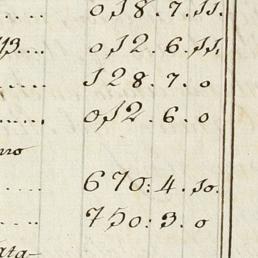 ..... 018.7.11.
..... 012.6.11.
..... 128.7.0
..... 012.6.0
..... 670:4.10.
..... 750:3.0
ata-